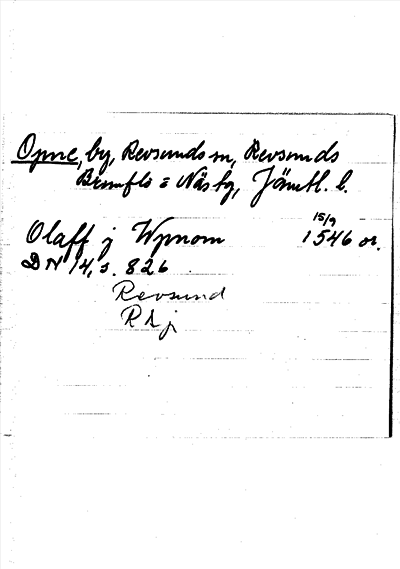 Opne, by, Revsunds sn, Revsunds
Brunflo = Näs tg, Jämtl. l.
15/9
Olaff j Wpnom 1546 or.
DN 14, s. 826
Revsund